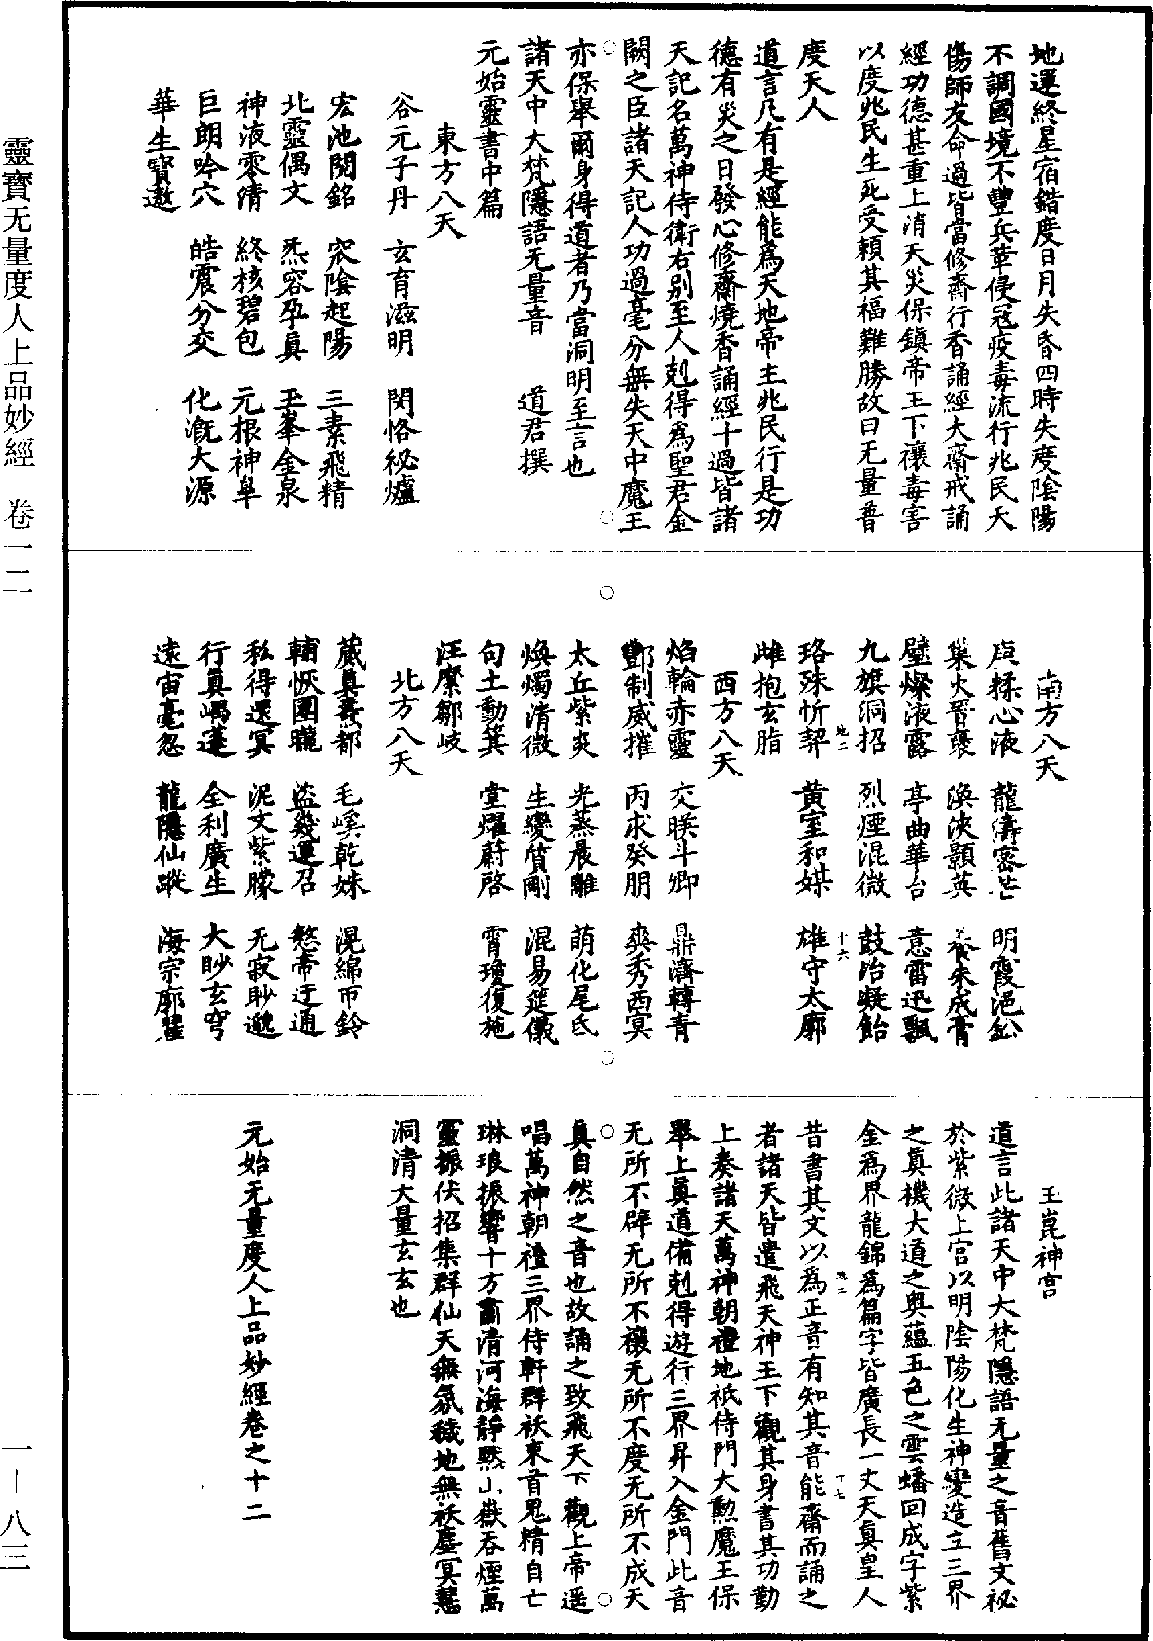 地運終星宿錯度日月失昏四時失度陰陽
不調國境不豐兵革侵寇疫毒流行兆民夭
傷師友命過皆當修齋行香誦經大齋戒誦
經功德甚重上消天災保鎮帝王下禳毒害
以度兆民生死受賴其福難勝故曰无量普
度天人
道言凡有是經能爲天地帝主兆民行是功
德有災之日發心修齋燒香誦經十過皆諸
天記名萬神侍衛右別至人剋得爲聖君金
闕之臣諸天記人功過毫分無失天中魔王
亦保舉爾身得道者乃當洞明至言也
諸天中大梵隱語无量音　道君撰
元始靈書中篇
東方八天
谷元子丹　玄育滋明　閔恪祕爐
宏池閱銘　冞陰起陽　三素飛精
北靈偶文　炁容孕真　玉峯金泉
神液零清　終核碧包　元根神阜
巨朗吟穴　皓震分交　化漑大源
華生寶遨
南方八天
心液　龍濤密　明霞浥
集火晉褎　渙浹顥英　養朱成膏
璧燦液露　亭曲華台　意雷迅飄
九旗洞招　烈煙混微　鼓冶凝飴
珞殊忻契　黃室和媒　雄守太廓
雌抱玄脂
西方八天
焰輪赤靈　交映斗卿　鼎濟轉青
酆制威摧　丙求癸朋　爽秀西冥
太丘紫爽　光蒸晨離　萌化尾氐
煥燭清微　生變質剛　混易筵儀
句土動箕　堂燿蔚啓　霄瓊復施
汪縻鄒岐
北方八天
葳真壽都　毛嵠乾妹　滉綿帀鈴
輔恢團朧　盜幾運召　愁帝迂通
私得還冥　泥文紫朦　无寂眇邈
行真嵎蓬　全利廣生　大眇玄穹
遠宙毫忽　龍隱仙蹤　海宗廓
玉崑神宮
道言此諸天中大梵隱語无量之音舊文祕
於紫微上宮以明陰陽化生神變造立三界
之真機大道之奥蘊五色之雲蟠回成字紫
金爲界龍錦爲篇字皆廣長一丈天真皇人
昔書其文以爲正音有知其音能齋而誦之
者諸天皆遣飛天神王下觀其身書其功勤
上奏諸天萬神朝禮地祇侍門大勲魔王保
舉上真道備剋得遊行三界昇入金門此音
无所不辟无所不禳无所不度无所不成天
真自然之音也故誦之致飛天下觀上帝遥
唱萬神朝禮三界侍軒群祅束首鬼精自亡
琳琅振響十方肅清河海靜默山嶽吞煙萬
靈振伏招集群仙天無氛穢地無祅塵冥慧
洞清大量玄玄也
元始无量度人上品妙經卷之十二
靈寶无量度人上品妙經　卷一二
一－八三